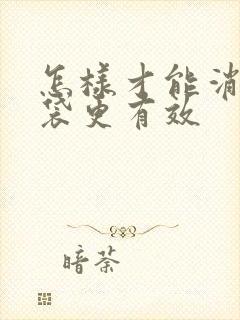 怎樣才能消
袋更有效
暗荼